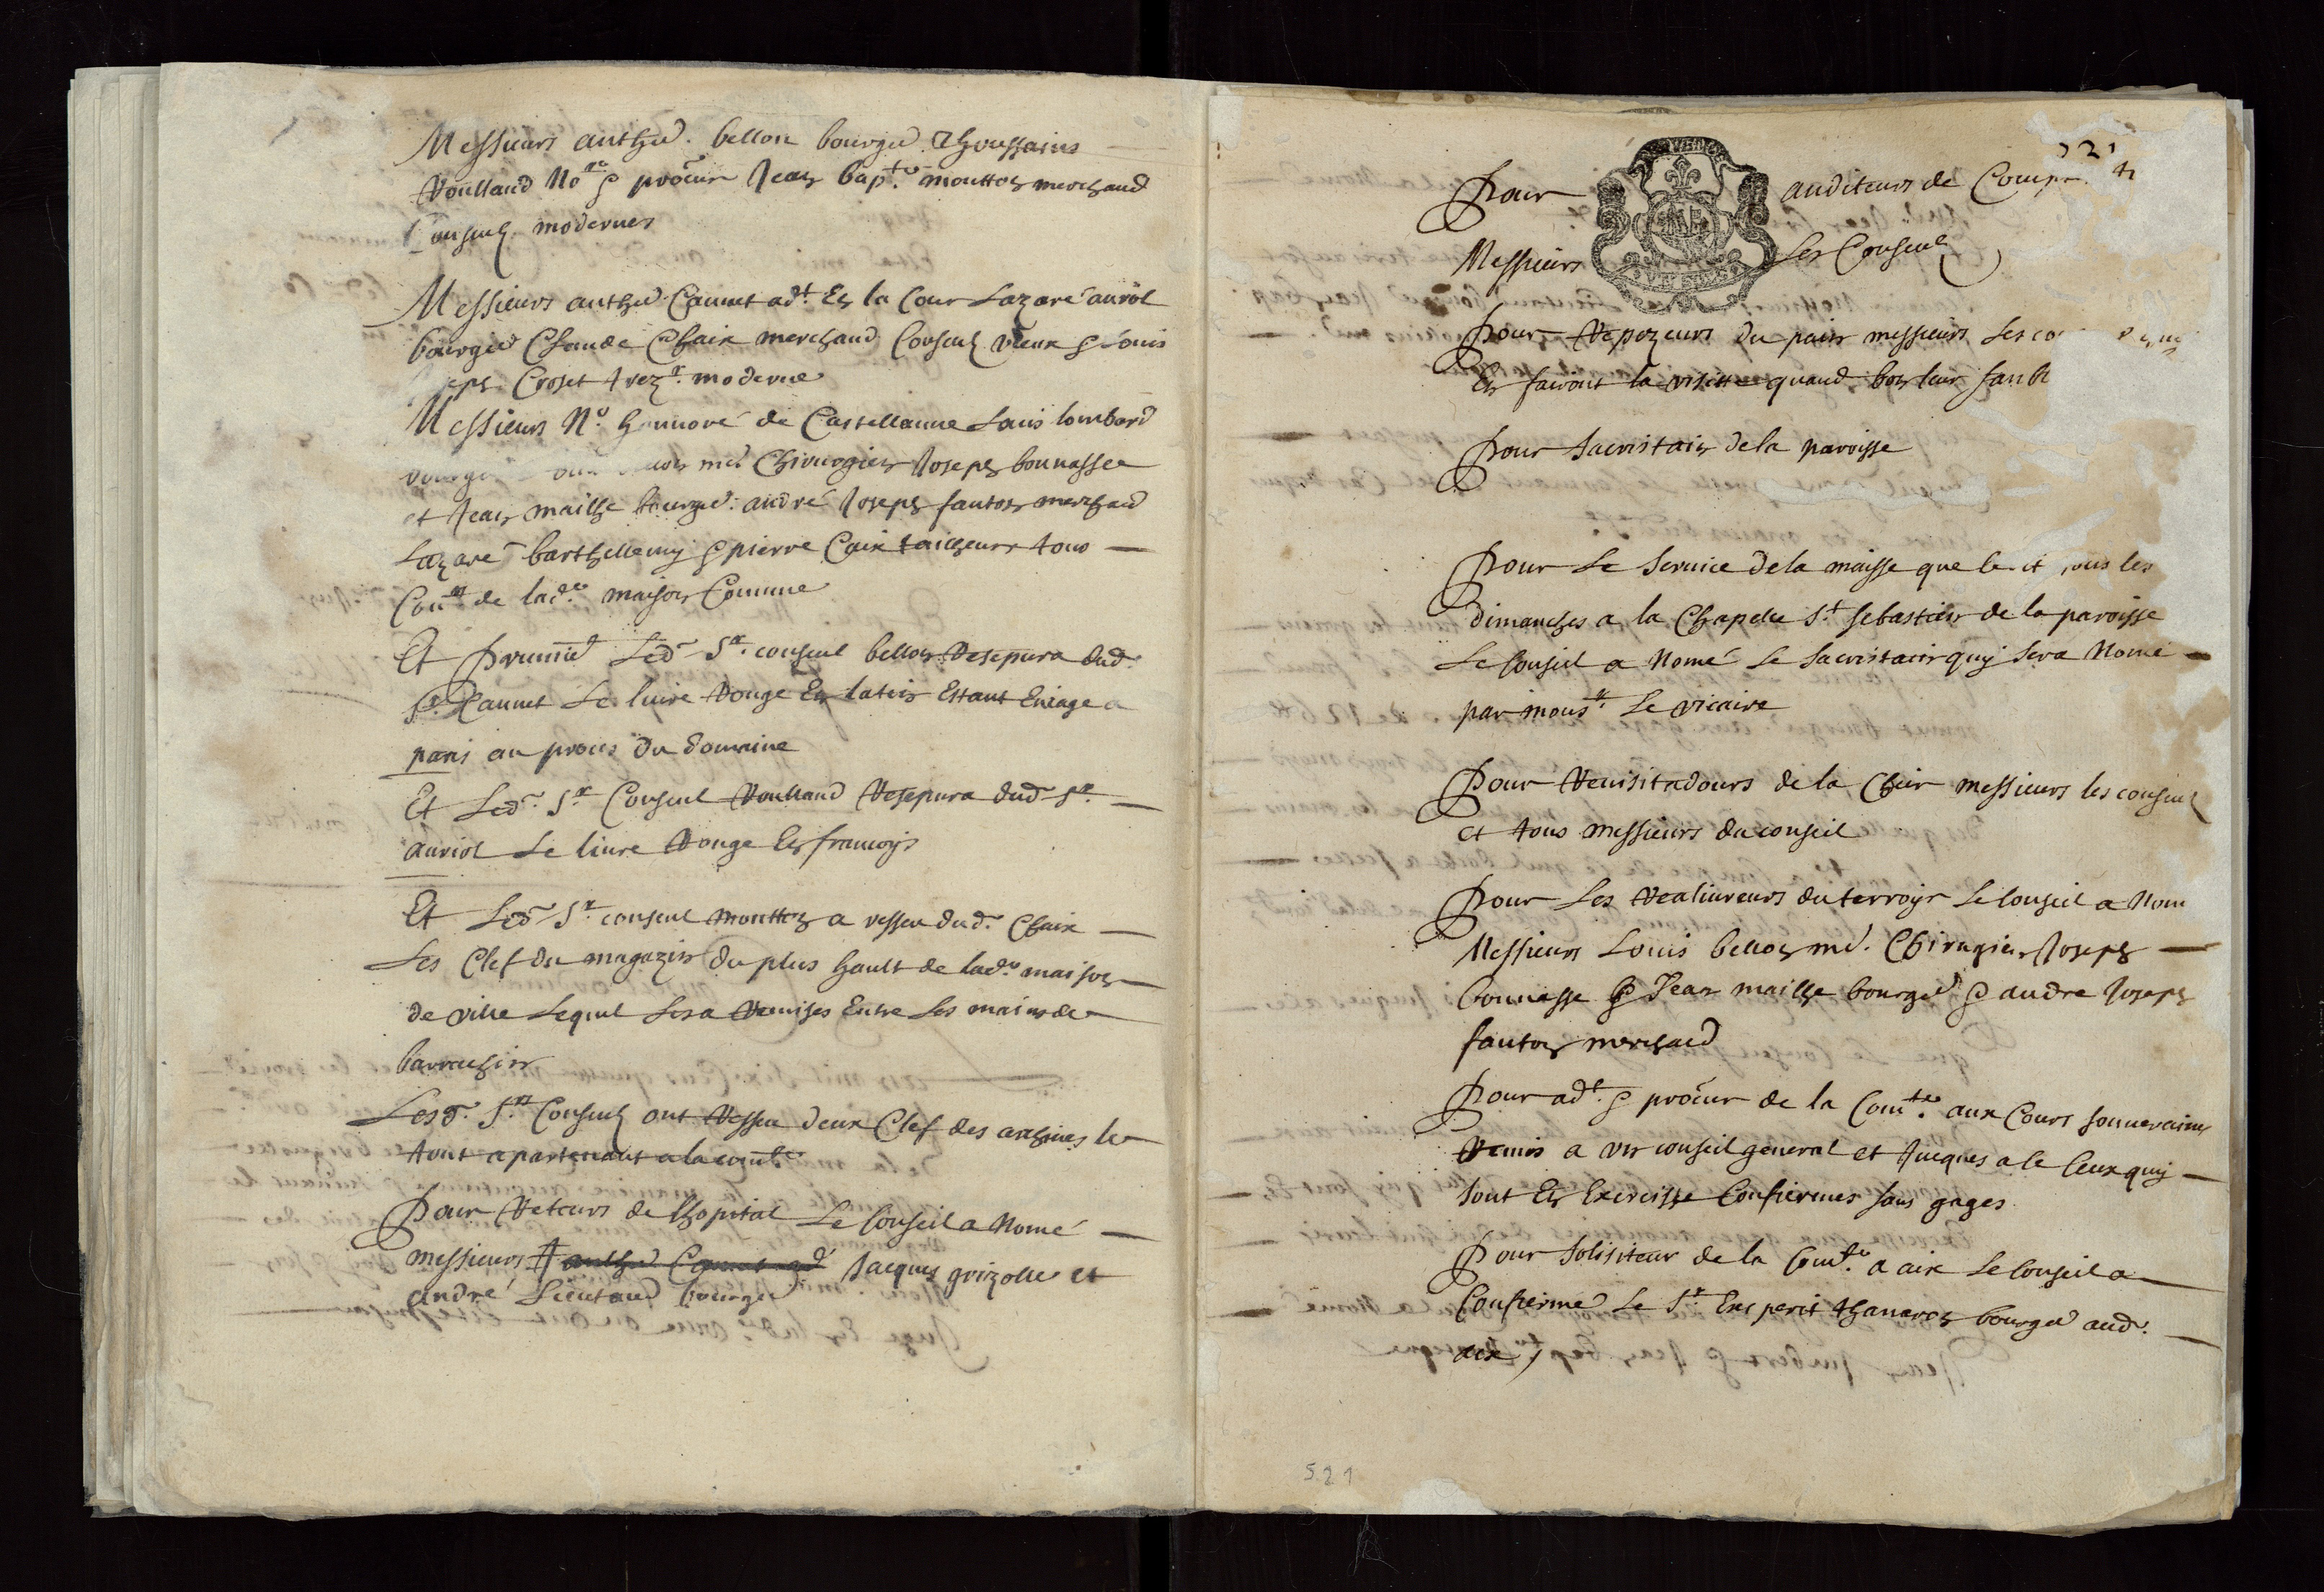 Messieurs anthe. bellon bourge. Thoussains
Roulland No.re & procur Jean bap.te moutton merchand
Conseulz modernes
Messieurs anthe. Cannet ad.t En la Cour Lazare auriol
bourge Claude Chaix merchand Consulz vieux & Louis
Croset trez.r moderne
Messieurs N.e honnoré de Castellanne Louis lombard
me. Chirurgien Joseph bonnasse
et Jean mailhe bourge. andré Joseph fauton merchand
Lazare barthellemy & pierre Caix tailheurs tous
Con.rs de lad.e maison Comune
Et Premie. Led. S.r conseul bellon Resepura dud.
S.r Cannet Le livre Rouge En latin Estant Engage a
paris au proces du domaine
Et Led. S.r Conseul Roulland Resepura dud S.r
auriol Le livre Rouge En francoys
Et Led. S.r conseul moutton a ressu dud. Chaix
Les Clef du magazin du plus hault de lad.e maison
de ville Lequel Sera Remises Entre Les mains de
barruchin
Lesd. S.rs Conseulz ont Ressu deux Clef des archives le
tout apartenant a la com.te
Pour Reteurs de lhopital Le Conseil a Nomé
messieurs anthe Cannet ad. Jacques grizolle et
andré Lieutaud bourge
521
Pour auditeurs de Comp
Messieurs Les Conseulz
Pour Repezeurs du pain messieurs Les co
En fairont la visitte quand bon leur sanbl
Pour Sacristain de la paroisse
Pour Le Service de la maisse que le dit tous les
dimanches a la Chapelle S.t sebastien de la paroisse
Le Conseil a Nomé Le Sacristain quy Sera Nomé
par mons.r Le vicaire
Pour Revisitadours de la Chir messieurs les conseulz
et tous messieurs du conseil
Pour Les Realivreurs du terroyr Le Conseil a Nom
Messieurs Louis bellon me. Chirugien Joseph
bonnasse & Jean mailhe bourge & andre Joseph
fauton merchand
Pour ad.t & procur de la Com.te aux Cours souveraines
Remis a un conseil general et Jucques a le Ceux quy
sont En Exercisse Confiermes sans gages
Pour Solisiteur de la Com.te a aix Le Conseil a
Confiermé Le S.r Esperit thanaron bourge aud.
aix
521